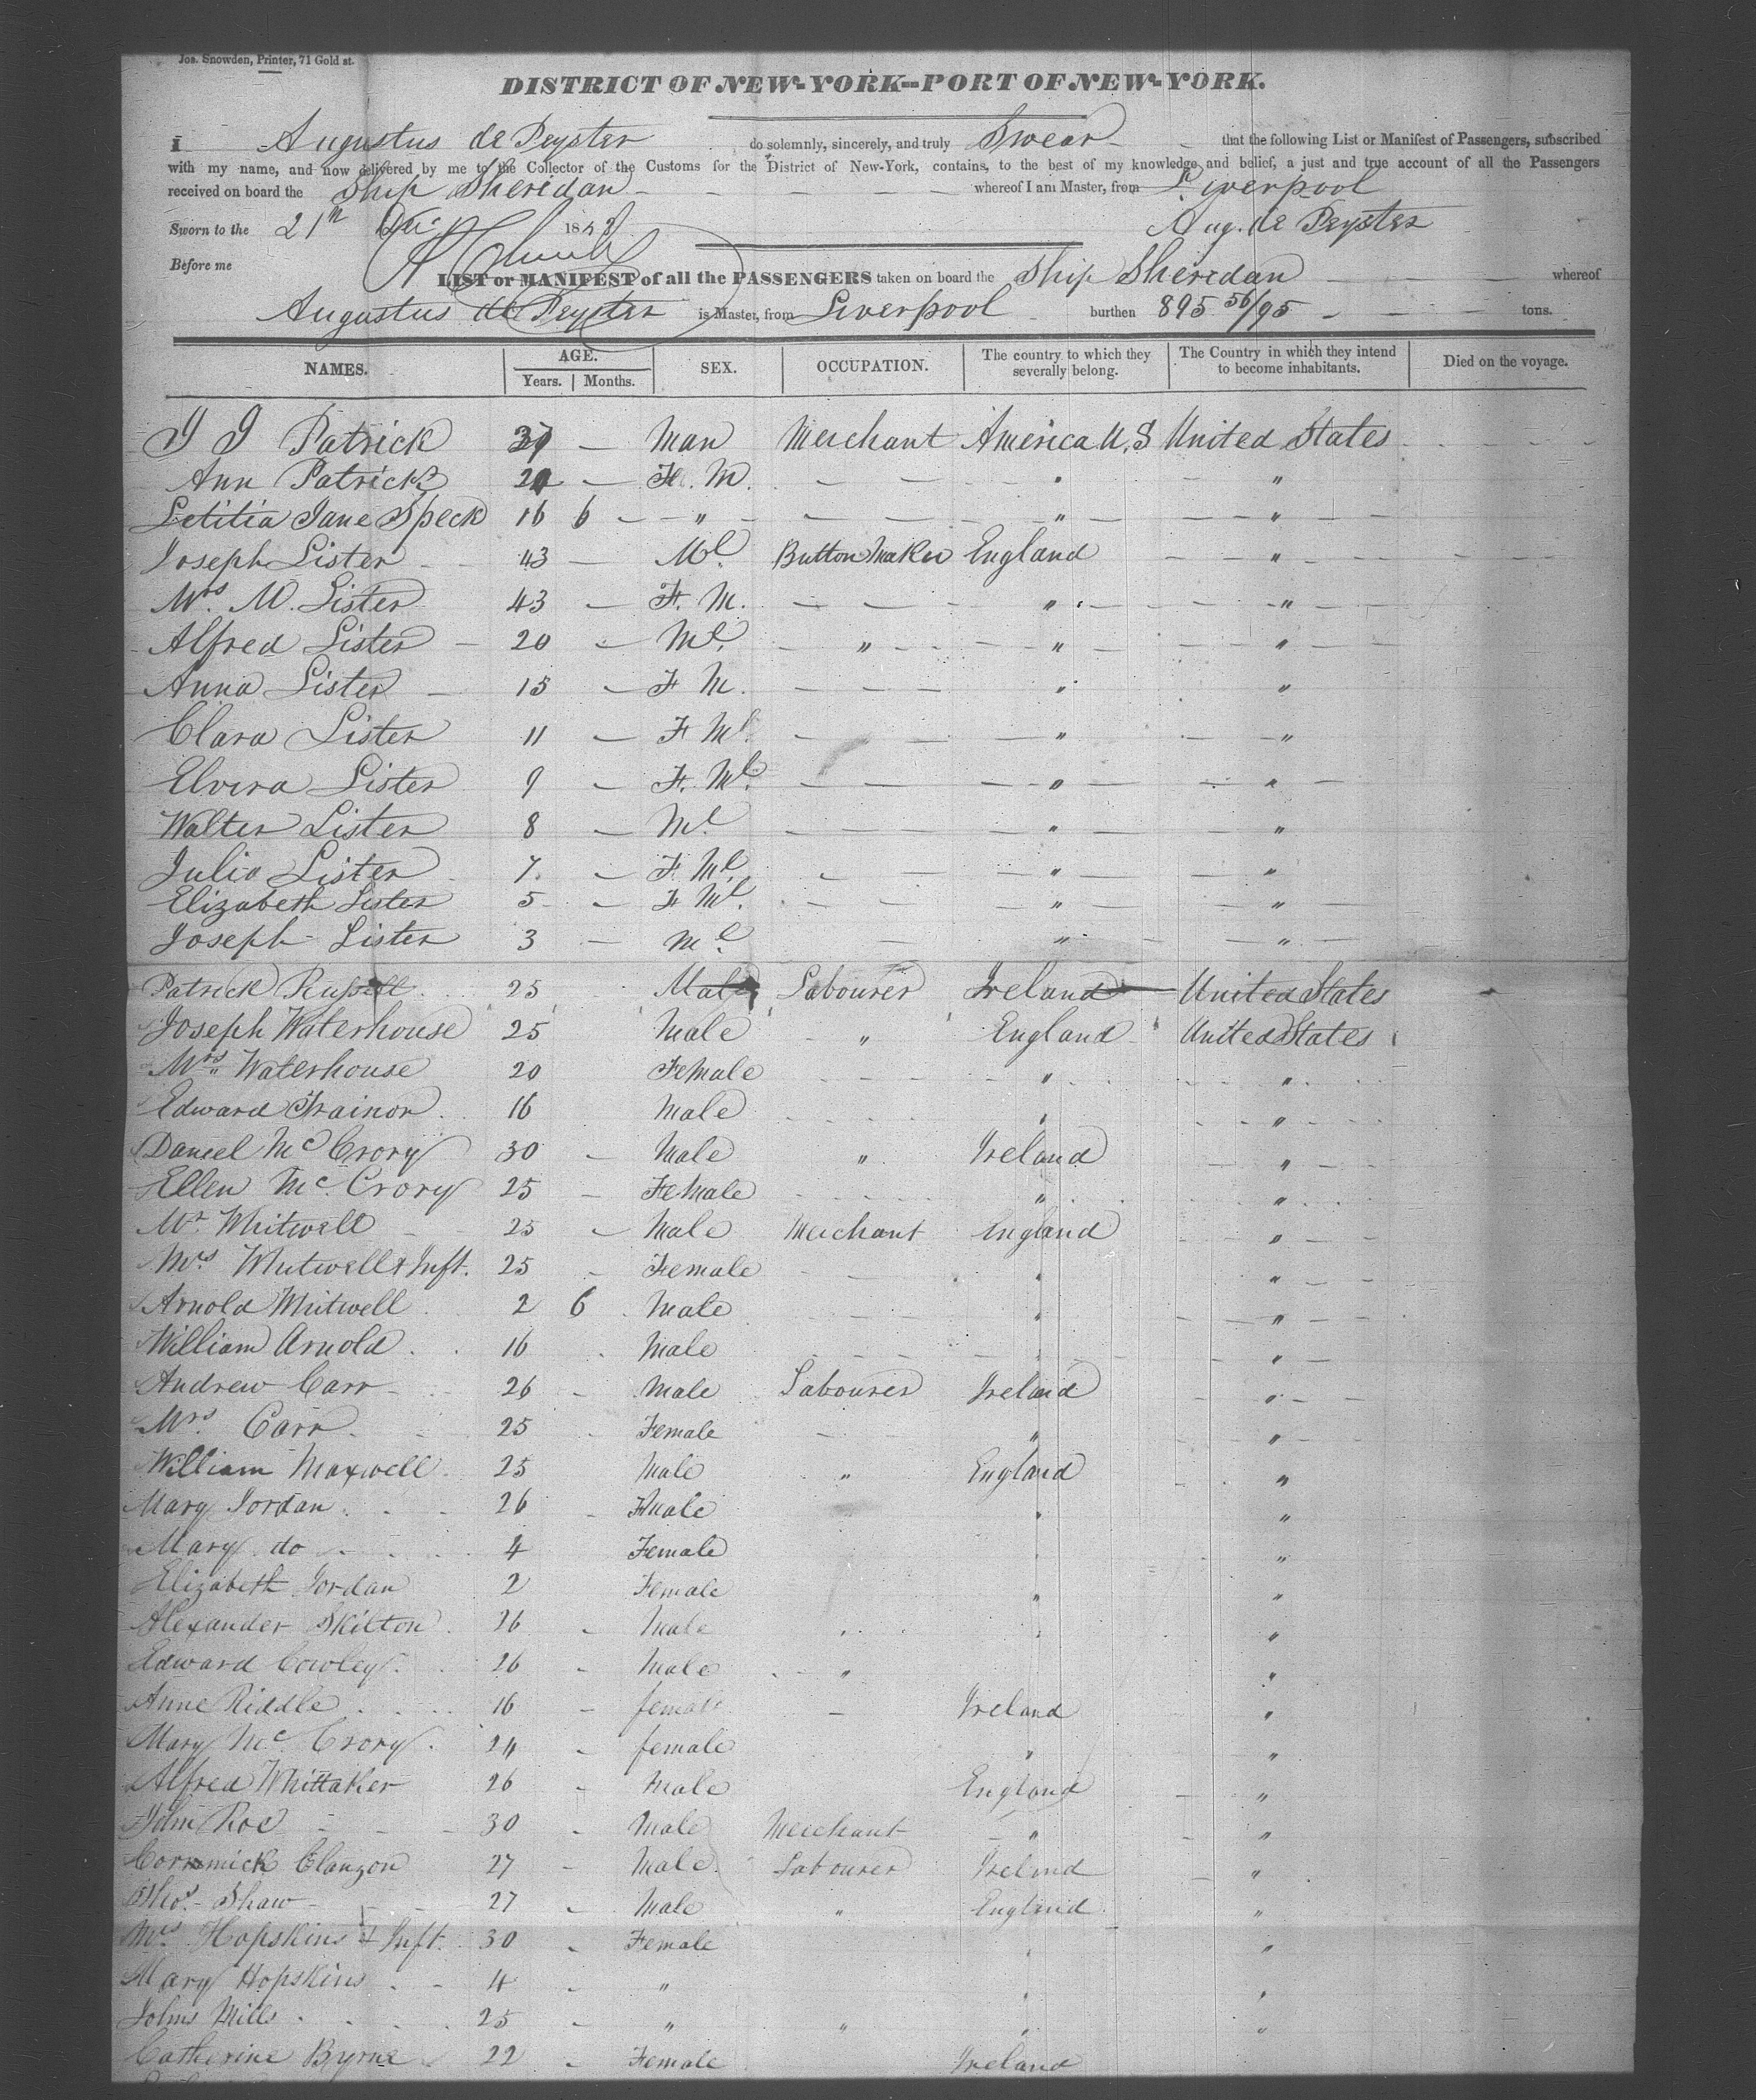 Jos. Snowden, Printer, 71 Gold st.
DISTRICT OF NEW-YORK--PORT OF NEW-YORK.
I Augustus de Peyster do solemnly, sincerely, and truly Swear that the following List or Manifest of Passengers, subscribed
with my name, and now delivered by me to the Collector of the Customs for the District of New-York, contains, to the best of my knowledge and belief, a just and true account of all the Passengers
received on board the Ship Sheridan whereof I am Master, from Liverpool
Sworn to the 21st Dec. 184 Aug. de Peyster
Before me
LIST or MANIFEST of all the PASSENGERS taken on board the Ship Sheridan whereof
Augustus de Peyster is Master, from Liverpool burthen 895 56/95 tons.
NAMES. AGE. Years. Months. SEX. OCCUPATION. The country to which they severally belong. The Country in which they intend to become inhabitants. Died on the voyage.
J J Patrick — Man Merchant America U.S United States
Ann Patrick — Fe. M. — — " "
Letitia Jane Speck 16 6 — " — — " — "
Joseph Lister 43 — Ml. Button Maker England — " —
Mrs. M. Lister 43 — F. M. — — " — "
Alfred Lister — 20 — Ml. " — " — "
Anna Lister — 15 — F M. — — " "
Clara Lister 11 — F Ml. — — " — "
Elvira Lister 9 — F. Ml. — — " — " —
Walter Lister 8 — Ml — — " — "
Julia Lister 7 — F. Ml. — — " — "
Elizabeth Lister 5 — F Ml. — — " — " —
Joseph Lister 3 — Ml. — " — " —
Patrick Russell 25 Male Labourer Ireland United States
Joseph Waterhouse 25 Male " England United States
Mrs. Waterhouse 20 Female " "
Edward Trainor 16 Male " "
Daniel McCrory 30 - Male " Ireland "
Ellen McCrory 25 - Female " "
Mr. Whitwell 25 - Male Merchant England "
Mrs. Whitwell & Inft. 25 - Female " "
Arnold Whitwell 2 6 Male " "
William Arnold 16 Male " "
Andrew Carr 26 - Male Labourer Ireland "
Mrs. Carr 25 Female " "
William Maxwell 25 Male " England "
Mary Jordan 26 - Female " "
Mary do 4 Female " "
Elizabeth Jordan 2 Female " "
Alexander Skilton 26 - Male " " "
Edward Cowley 26 - Male " "
Anne Riddle 16 - female - Ireland "
Mary McCrory 24 - female " "
Alfred Whittaker 26 - Male England "
John Roe 30 - Male Merchant " "
Cormick Clanzon 27 - Male Labourer Ireland "
Thos. Shaw 27 - Male " England "
Mrs. Hopskins & Inft. 30 - Female " "
Mary Hopskins 4 - " " "
John Mills 25 - " " " "
Catherine Byrne 22 - Female Ireland